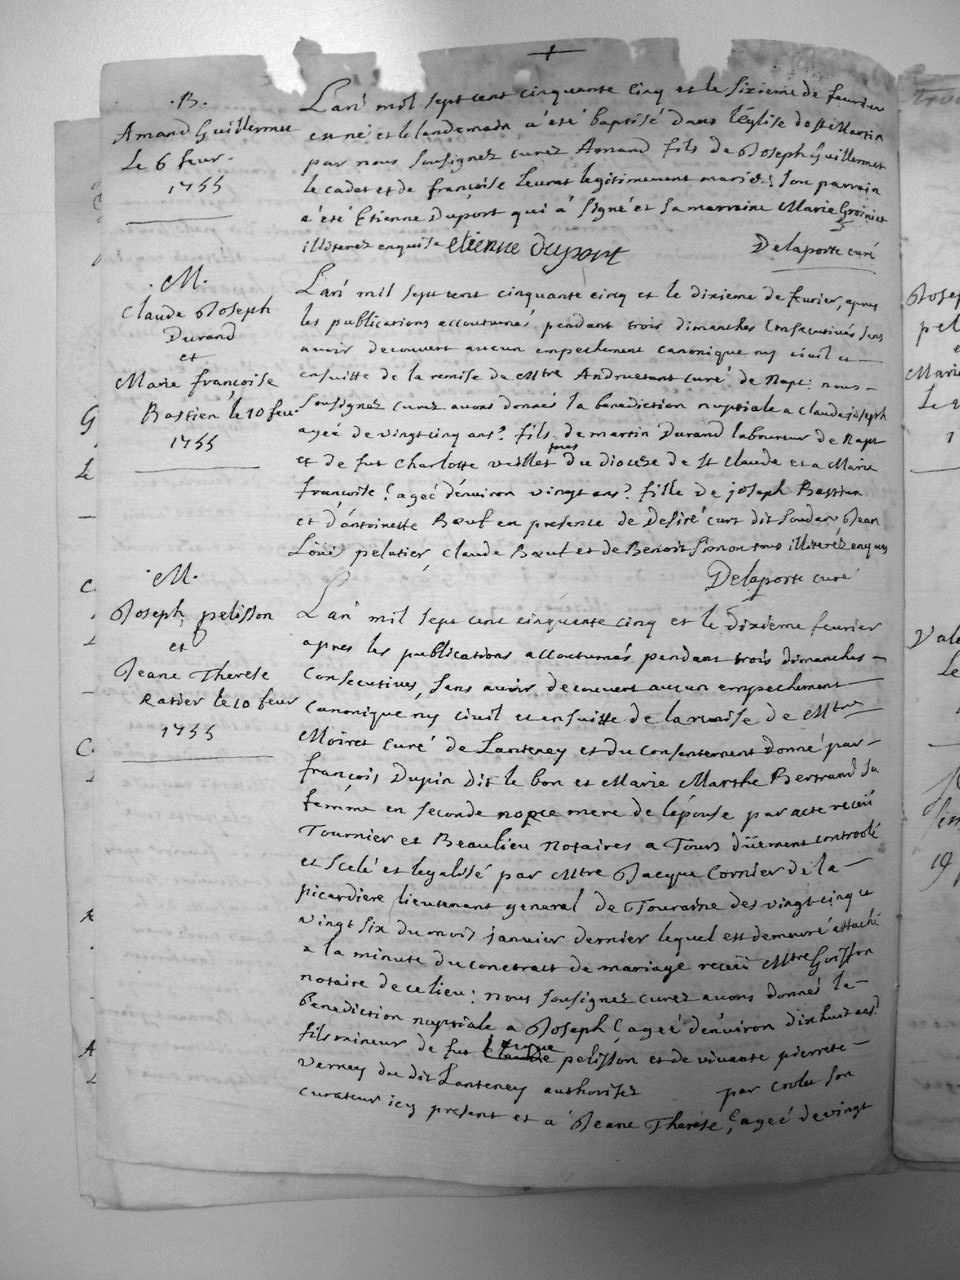 .B.
Amand Guillermet
Le 6 feur.
1755
L'an mil sept cent cinquante cinq et le sixieme de feurier
est né et le landemain a été baptisé dans l'église de St Martin
par nous sousignez curez Amand fils de Joseph Guillermet
le cadet et de françoise Leurat legitimement mariés; son parrain
a été Etienne Duport qui a signé et sa marraine Marie Groiniet
illiterez enquise etienne duport Delaporte curé
.M.
Claude Joseph
Durand
et
Marie françoise
Bastien le 10 feur
1755
L'an mil sept cent cinquante cinq et le dixieme de feurier, apres
les publications accoutumés pendant trois dimanches consecutives sans
auoir decouvert aucun empechement canonique ny ciuil et
ensuitte de la remise de Mtre Andruetant curé de Napt: nous
sousignez curez auons donnés la benediction nuptiale a Claude joseph
ageé de vingt cinq ans? fils de martin Durand laboureur de Napt
et de fut Charlotte veillet du diocese de St Claude et a Marie
francoise ageé d'enuiron vingt ans? fille de joseph Bastien
et d'antoinette Bœuf en presence de Desiré curt dit Soudan, Jean
Loüis pelatier, Claude Bœuf et de Benoit Simon tous illiterez enquis
Delaporte curé
.M.
Joseph pelisson
et
Jeane Therese
Ratier le 10 feur
1755
L'an mil sept cent cinquente cinq et le dixieme feurier
apres les publications accoutumés pendant trois dimanches
consecutives, sans auoir decouvert aucun empechement
canonique ny ciuil et ensuitte de la remise de Mtre
Moiret curé de Lanteney et du consentement donné par
françois Dupin dit le bon et Marie Marthe Bertrand sa
femme en seconde nopce mere de l'épouse par acte receu
Tournier et Beaulieu notaires a Tours düement controolé
et scelé et legalisé par Mtre Jacque Cornier de la
picardiere lieutenant general de Touraine des vingt cinq et
vingt six du mois janvier dernier lequel est demeuré attaché
a la minute du conctract de mariage receü Mtre Goisson
notaire de ce lieu: nous sousignez curez auons donnés la
benediction nuptiale a Joseph ageé d'enuiron dixhuit ans?
fils mineur de fut Claude pelisson et de viuante pierrete
verney du dit Lanteney authorisez par
curateur icy present et a Jeane Therese ageé de vingt